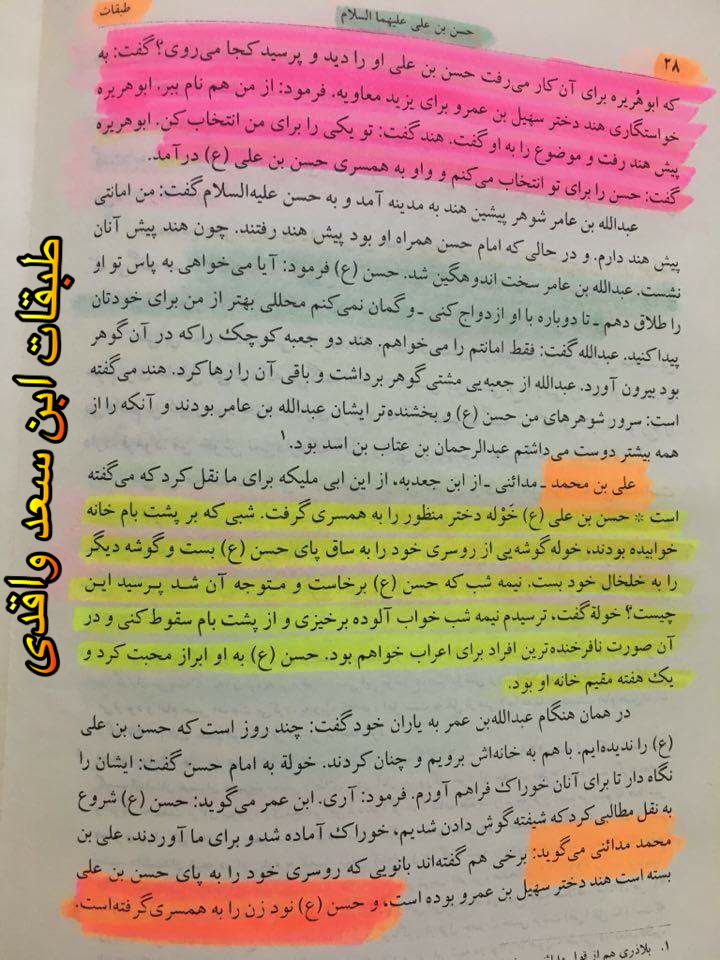 طبقات
حسن بن علی علیهما السلام
۲۸
که ابوهُریره برای آن کار می‌رفت حسن بن علی او را دید و پرسید کجا می‌روی؟ گفت: به
خواستگاری هند دختر سهیل بن عمرو برای یزید معاویه. فرمود: از من هم نام ببر. ابوهریره
پیش هند رفت و موضوع را به او گفت. هند گفت: تو یکی را برای من انتخاب کن. ابوهریره
گفت: حسن را برای تو انتخاب می‌کنم و واو به همسری حسن بن علی (ع) درآمد.
عبدالله بن عامر شوهر پیشین هند به مدینه آمد و به حسن علیه‌السلام گفت: من امانتی
پیش هند دارم. و در حالی که امام حسن همراه او بود پیش هند رفتند. چون هند پیش آنان
نشست. عبدالله بن عامر سخت اندوهگین شد. حسن (ع) فرمود: آیا می‌خواهی به پاس تو او
را طلاق دهم ـ تا دوباره با او ازدواج کنی ـ و گمان نمی‌کنم محللی بهتر از من برای خودتان
پیدا کنید. عبدالله گفت: فقط امانتم را می‌خواهم. هند دو جعبه کوچک را که در آن گوهر
بود بیرون آورد. عبدالله از جعبه‌یی مشتی گوهر برداشت و باقی آن را رها کرد. هند می‌گفته
است: سرور شوهرهای من حسن (ع) و بخشنده‌تر ایشان عبدالله بن عامر بودند و آنکه را از
همه بیشتر دوست می‌داشتم عبدالرحمان بن عتاب بن اسد بود.۱
علی بن محمد ـ مدائنی ـ از ابن جعدبه، از ابن ابی ملیکه برای ما نقل کرد که می‌گفته
است * حسن بن علی (ع) خَوْله دختر منظور را به همسری گرفت. شبی که بر پشت بام خانه
خوابیده بودند، خوله گوشه‌یی از روسری خود را به ساق پای حسن (ع) بست و گوشه دیگر
را به خلخال خود بست. نیمه شب که حسن (ع) برخاست و متوجه آن شد پرسید این
چیست؟ خولة گفت، ترسیدم نیمه شب خواب آلوده برخیزی و از پشت بام سقوط کنی و در
آن صورت نافرخنده‌ترین افراد برای اعراب خواهم بود. حسن (ع) به او ابراز محبت کرد و
یک هفته مقیم خانه او بود.
در همان هنگام عبدالله‌بن عمر به یاران خود گفت: چند روز است که حسن بن علی
(ع) را ندیده‌ایم. با هم به خانه‌اش برویم و چنان کردند. خولة به امام حسن گفت: ایشان را
نگاه دار تا برای آنان خوراک فراهم آورم. فرمود: آری. ابن عمر می‌گوید: حسن (ع) شروع
به نقل مطالبی کرد که شیفته گوش دادن شدیم، خوراک آماده شد و برای ما آوردند. علی بن
محمد مدائنی می‌گوید: برخی هم گفته‌اند بانویی که روسری خود را به پای حسن بن علی
بسته است هند دختر سهیل بن عمرو بوده است، و حسن (ع) نود زن را به همسری گرفته‌است.
۱. بلاذری هم از قول
طبقات ابن سعد واقدی